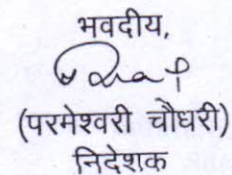 भवदीय,
(परमेश्वरी चौधरी)
निदेशक